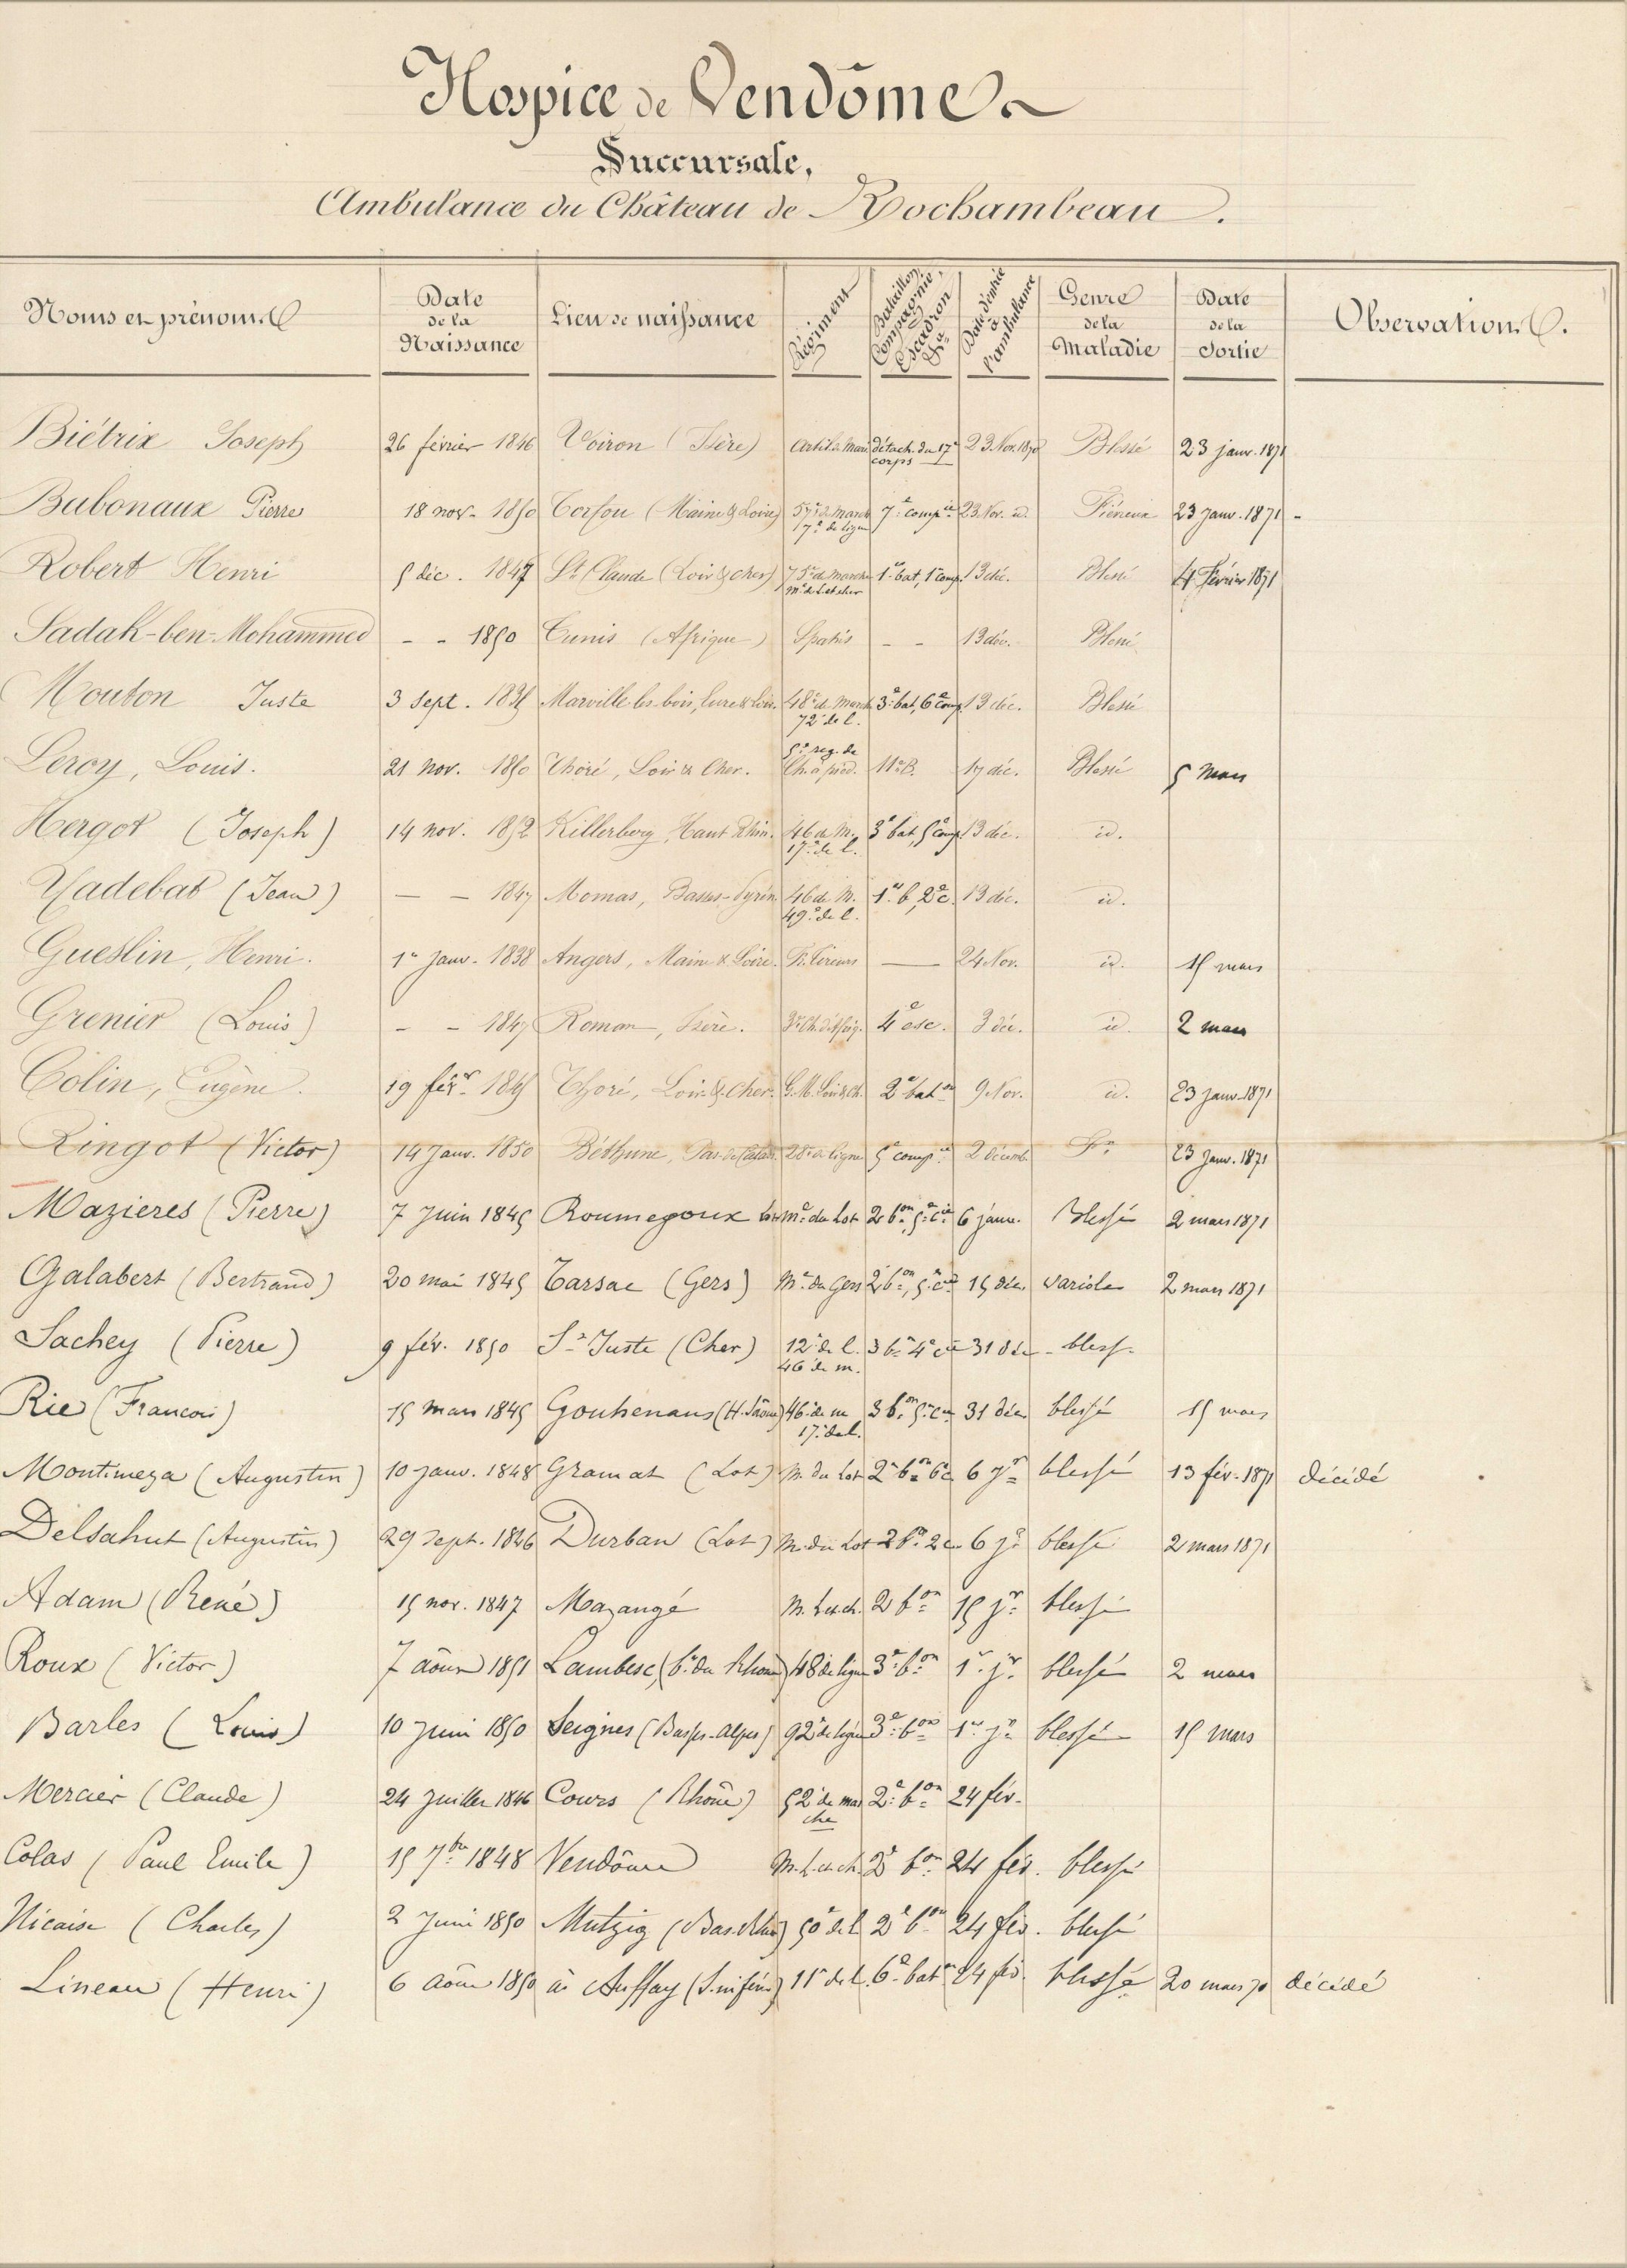 Hospice de Vendôme
Succursale,
Ambulance du Château de Rochambeau.
Noms et prénoms Date de la Naissance Lieu de naissance Régiment Bataillon, Compagnie, Escadron &a Date d'entrée à l'ambulance Genre de la Maladie Date de la Sortie Observations.
Biétrix Joseph 26 février 1846 Voiron (Isère) Artill. Mari. détach. du 17e corps 23 Nov. 1870 Blessé 23 janv. 1871
Bubonaux Pierre 18 nov. 1850 Torfou (Maine & Loire) 51e de marche 17e de ligne 7e compie 23 Nov. id. Fiévreux 23 janv. 1871
Robert Henri 5 déc. 1847 St Claude (Loir & Cher) 75e de marche m. de L et cher 1er bat, 1e comp. 13 déc. Blessé 4 Février 1871
Sadak-ben-Mohammed - - 1850 Tunis (Afrique) Spahis - - 13 déc. Blessé
Mouton Juste 3 Sept. 1835 Marville-les-bois, Eure & Loir. 48e de March 72e de l. 3e bat, 6e comp. 13 déc. Blessé
Leroy, Louis. 21 nov. 1850 Thoré, Loir & Cher. 5e reg. de Ch. à pied. 11e B. 17 déc. Blessé 5 Mars
Hergot (Joseph) 14 nov. 1852 Killerberg, Haut Rhin. 46 de M. 17e de l. 3e bat, 5e comp. 13 déc. id.
Yadebat (Jean) — — 1847 Momas, Basses-Pyrén. 46 de M. 49e de l. 1er b, 2e c. 13 déc. id.
Gueslin, Henri. 1er Janv. 1838 Angers, Maine & Loire. Fr. Tireurs — 24 Nov. id. 15 mars
Grenier (Louis) - - 1847 Roman, Isère. 3e Ch. d'Afriq. 4e esc. 3 déc. id. 2 mars
Colin, Eugène. 19 févr. 1845 Thoré, Loir & Cher. G. M. Loir & Ch. 2e baton 9 Nov. id. 23 janv. 1871
Lingot (Victor) 14 Janv. 1850 Béthune, Pas de Calais. 28e de ligne 5e compie 2 décemb. Fr. 23 Janv. 1871
Mazieres (Pierre) 7 Juin 1845 Roumegoux Lot me du Lot 2 bon, 5e cie 6 janv. Blessé 2 mars 1871
Galabert (Bertrand) 20 mai 1845 Tarsac (Gers) me du Gers 2e bon, 5e cie 15 déc Variole 2 mars 1871
Sachey (Pierre) 9 fév. 1850 St Juste (Cher) 12e de l. 46 de m. 3 bon 4e cie 31 déc bless.
Rie (Francois) 15 mars 1845 Gouhenans (H. Saône) 46 de m 17e de l. 3 bon 5e cie 31 déc blessé 15 mars
Montimeza (Augustin) 10 janv. 1848 Gramat (Lot) m. du Lot 2e bon 6e c 6 jr blessé 13 fév. 1871 décédé
Delsahut (Augustin) 29 Sept. 1846 Durban (Lot) m. du Lot 2 bon 2 c 6 jr blessé 2 mars 1871
Adam (René) 15 nov. 1847 Mazangé m. L et ch. 2 bon 15 jr blessé
Roux (Victor) 7 août 1851 Lambesc, (b. du Rhône) 48 de ligne 3e bon 1er jr. blessé 2 mars
Barles (Louis) 10 juin 1850 Seignes (Basses-Alpes) 92e de ligne 3e bon 1er jr blessé 15 mars
Mercier (Claude) 24 Juillet 1846 Cours (Rhône) 52e de marche 2e bon 24 fév.
Colas (Paul Emile) 15 7bre 1848 Vendôme m. L et ch. 2e bon 24 fév. blessé
Nicaise (Charles) 2 Juin 1850 Mutzig (Bas Rhin) 50e de l 2e bon 24 fév. blessé
Lineau (Henri) 6 août 1850 à Auffay (S. inférie) 11e de l. 6e bat. 24 fév. blessé 20 mars 70 décédé